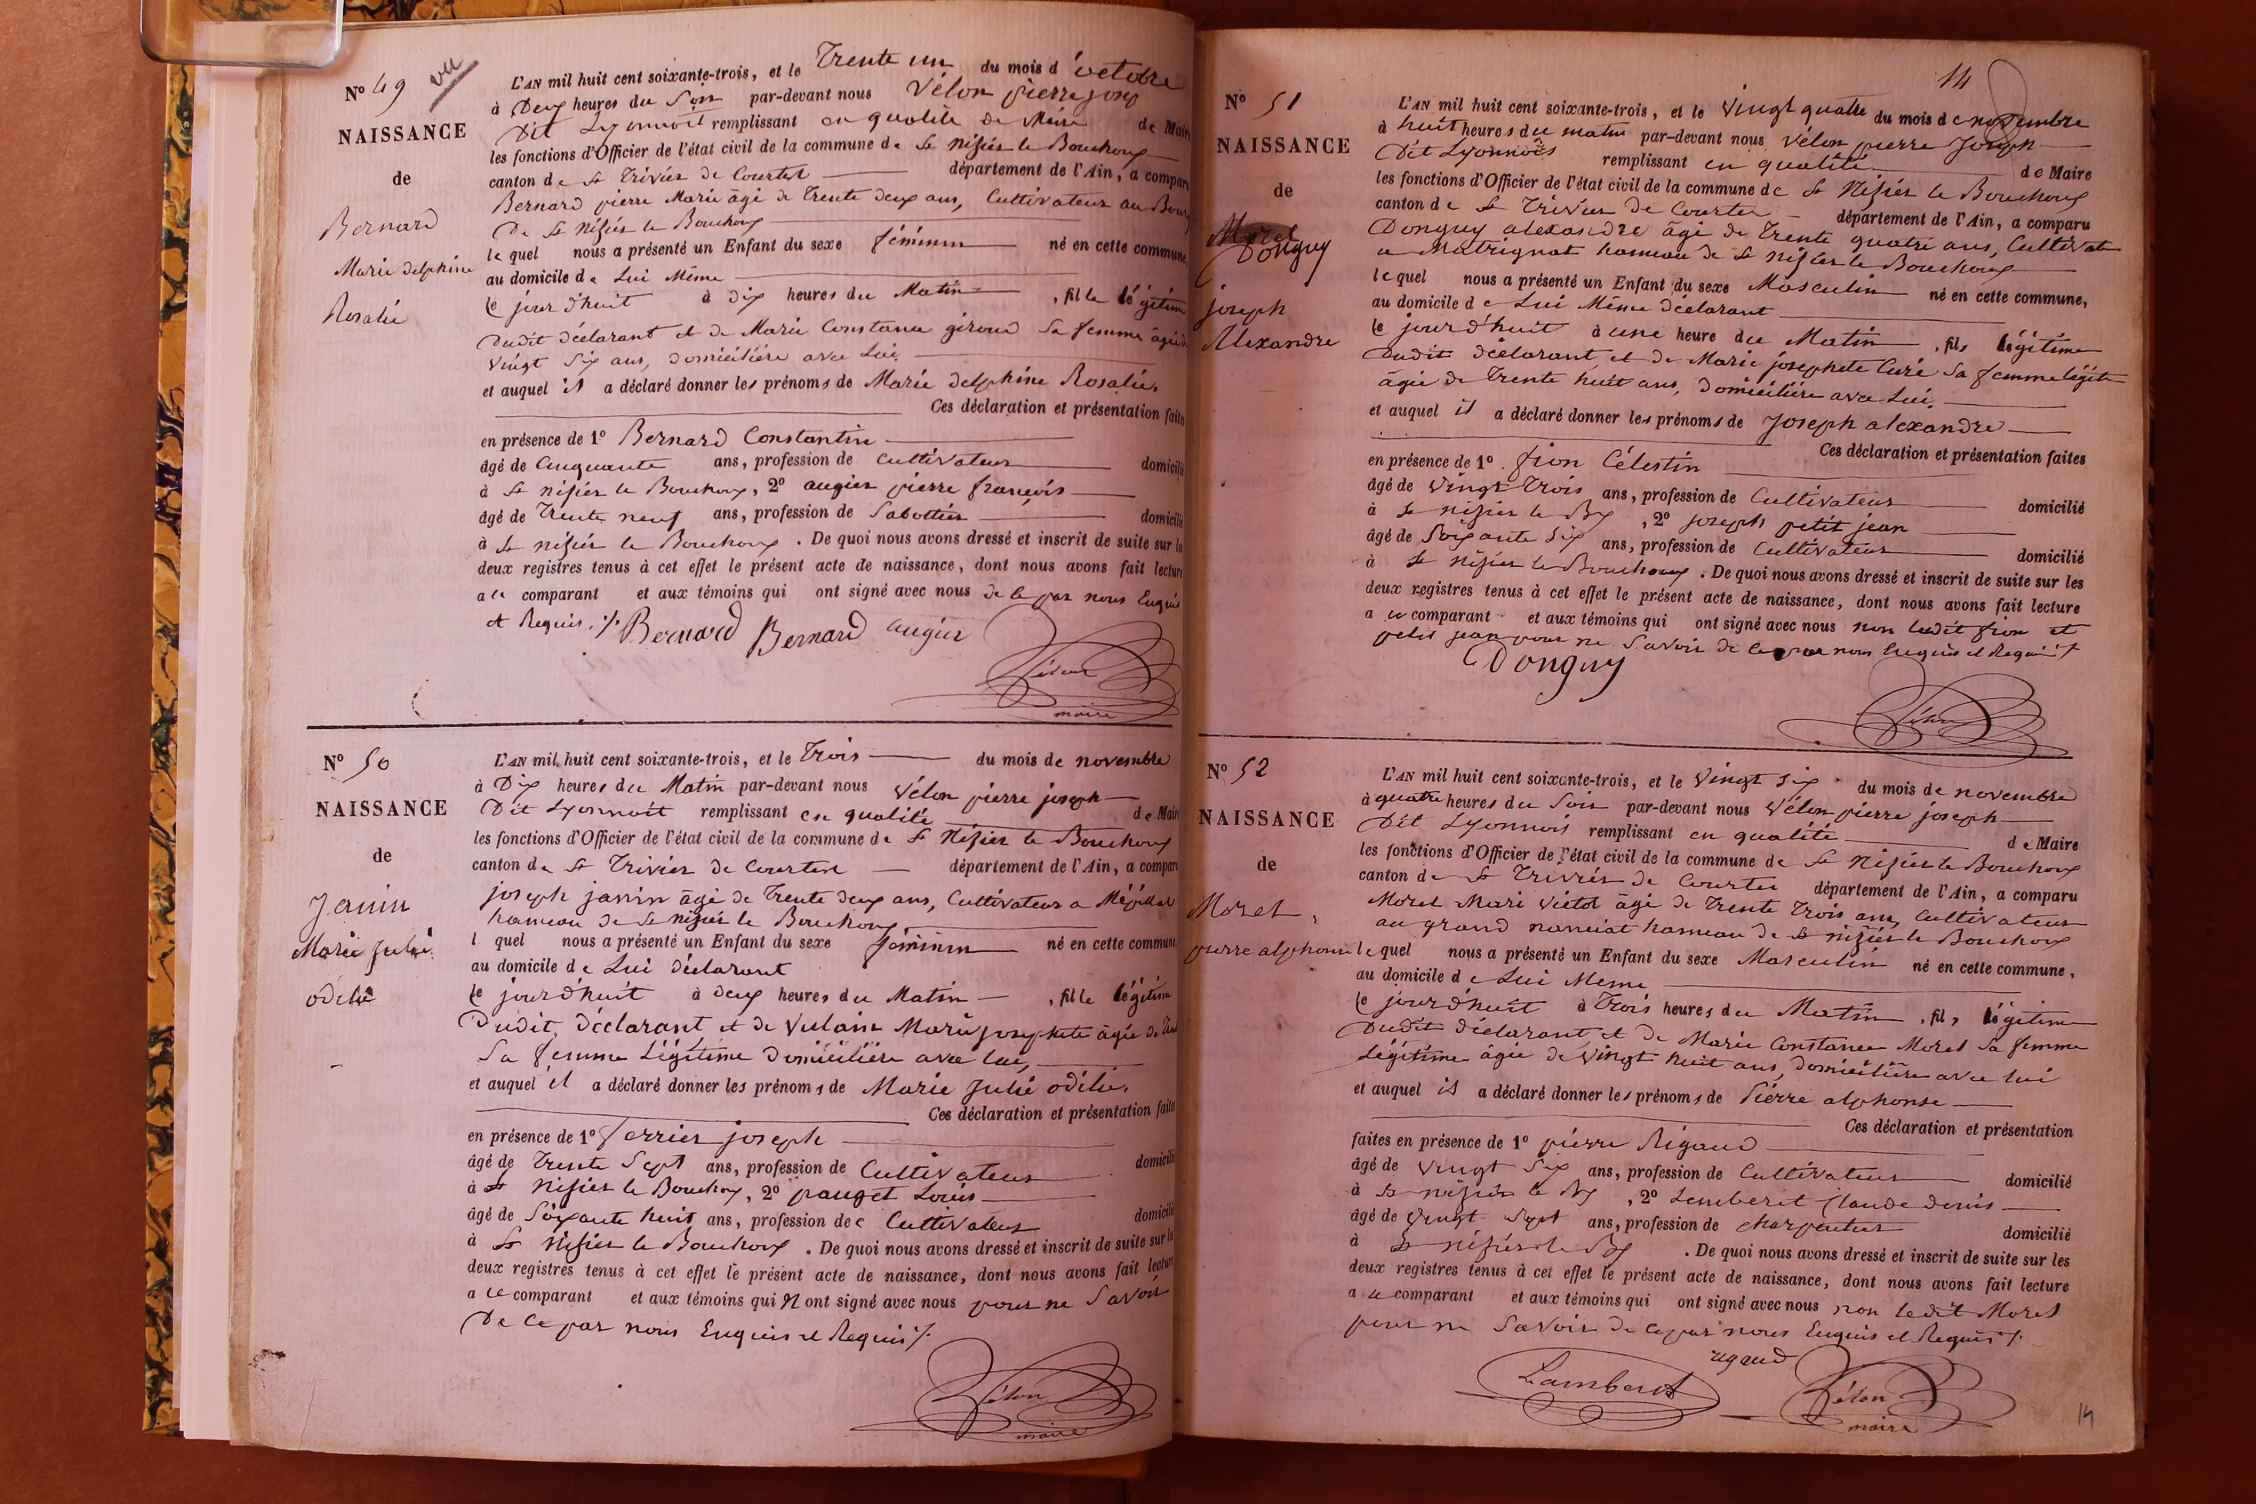 N° 49 vu
NAISSANCE
de
Bernard
Marie delphine
Rosalie
L'AN mil huit cent soixante-trois, et le Trente un du mois d'octobre
à Deux heures du Soir par-devant nous Vélon pierre josep
Dit Lyonnoit remplissant en qualité de Maire de Maire
les fonctions d'Officier de l'état civil de la commune de St Nizier le Bouchoux
canton de St Trivier de Courtes département de l'Ain, a comparu
Bernard pierre Marie âgé de Trente deux ans, Cultivateur au Bourg
De St Nizier le Bouchoux
le quel nous a présenté un Enfant du sexe féminin né en cette commune,
au domicile de Lui Même
le jour d'huit à dix heures du Matin, fille légitime
Dudit déclarant et de Marie Constance giroud Sa femme âgée de
Vingt Six ans, domiciliére avec Lui
et auquel il a déclaré donner les prénoms de Marie delphine Rosalie,
Ces déclaration et présentation faites
en présence de 1° Bernard Constantin
âgé de Cinquante ans, profession de Cultivateur domicilié
à St Nizier le Bouchoux, 2° augier pierre françois
âgé de Trente neuf ans, profession de Sabottier domicilié
à St nizier le Bouchoux. De quoi nous avons dressé et inscrit de suite sur les
deux registres tenus à cet effet le présent acte de naissance, dont nous avons fait lecture
au comparant et aux témoins qui ont signé avec nous de ce par nous Enquis
et Requis ./.
Bernard Bernard augier
Vélon
maire
N° 50
NAISSANCE
de
Janin
Marie Julie
odilie
L'AN mil huit cent soixante-trois, et le Trois du mois de novembre
à Dix heures du Matin par-devant nous Vélon pierre joseph
Dit Lyonnoit remplissant en qualité de Maire
les fonctions d'Officier de l'état civil de la commune de St Nizier le Bouchoux
canton de St Trivier de Courtes département de l'Ain, a comparu
joseph janin âgé de Trente deux ans, Cultivateur a
hameau de St Nizier le Bouchoux
l quel nous a présenté un Enfant du sexe féminin né en cette commune
au domicile de Lui déclarant
le jour d'huit à deux heures du Matin, fille légitime
Dudit déclarant et de Vulain Marie josephete âgée de
Sa femme Légitime domiciliére avec lui,
et auquel il a déclaré donner les prénoms de Marie Julie odilie,
Ces déclaration et présentation faites
en présence de 1° ferrier joseph
âgé de Trente Sept ans, profession de Cultivateur domicilié
à St Nizier le Bouchoux, 2° pauget Louis
âgé de Soixante huit ans, profession de Cultivateur domicilié
à St Nizier le Bouchoux. De quoi nous avons dressé et inscrit de suite sur les
deux registres tenus à cet effet le présent acte de naissance, dont nous avons fait lecture
a le comparant et aux témoins qui N ont signé avec nous pour ne Savoir
De ce par nous Enquis et Requis ./.
Vélon
maire
14
N° 51
NAISSANCE
de
Morel
Donguy
joseph
Alexandre
L'AN mil huit cent soixante-trois, et le Vingt quatre du mois de novembre
à huit heures du matin par-devant nous Vélon pierre Joseph
Dit Lyonnois remplissant en qualité de Maire
les fonctions d'Officier de l'état civil de la commune de St Nizier le Bouchoux
canton de St Trivier de Courtes département de l'Ain, a comparu
Donguy alexandre âgé de Trente quatre ans, Cultivat
a Matrignat hameau de St nizier le Bouchoux
le quel nous a présenté un Enfant du sexe Masculin né en cette commune,
au domicile de Lui Même déclarant
le jour d'huit à une heure du Matin, fils légitime
Dudit déclarant et de Marie josephete Curé Sa femme légit
âgée de Trente huit ans, domiciliére avec Lui,
et auquel il a déclaré donner les prénoms de Joseph alexandre
Ces déclaration et présentation faites
en présence de 1° fion Célestin
âgé de Vingt Trois ans, profession de Cultivateur domicilié
à St nizier le Bx, 2° joseph petit jean
âgé de Soixante Six ans, profession de Cultivateur domicilié
à St nizier le Bouchoux. De quoi nous avons dressé et inscrit de suite sur les
deux registres tenus à cet effet le présent acte de naissance, dont nous avons fait lecture
a le comparant et aux témoins qui ont signé avec nous non ledit fion et
petit jean pour ne Savoir de ce par nous Enquis et Requis ./.
Donguy
Vélon
N° 52
NAISSANCE
de
Morel
pierre alphonse
L'AN mil huit cent soixante-trois, et le Vingt Six du mois de novembre
à quatre heures du Soir par-devant nous Vélon pierre joseph
Dit Lyonnois remplissant en qualité de Maire
les fonctions d'Officier de l'état civil de la commune de St Nizier le Bouchoux
canton de St Trivier de Courtes département de l'Ain, a comparu
Morel Mari Victol âgé de Trente Trois ans, Cultivateur
au grand hameau de St nizier le Bouchoux
le quel nous a présenté un Enfant du sexe Masculin né en cette commune,
au domicile de Lui Meme
le jour d'huit à Trois heures du Matin, fils légitime
Dudit déclarant et de Marie Constance Morel Sa femme
Légitime âgée de Vingt huit ans, domiciliére avec lui
et auquel il a déclaré donner les prénoms de Piérre alphonse
Ces déclaration et présentation
faites en présence de 1° piérre Rigaud
âgé de Vingt Six ans, profession de Cultivateur domicilié
à St nizier le Bx, 2° Lemberet Claude denis
âgé de Vingt Sept ans, profession de charpentier domicilié
à St nizier le Bx. De quoi nous avons dressé et inscrit de suite sur les
deux registres tenus à cet effet le présent acte de naissance, dont nous avons fait lecture
a le comparant et aux témoins qui ont signé avec nous non ledit Morel
pour ne Savoir de ce par nous Enquis et Requis ./.
rigaud
Lamberet Vélon
maire
14